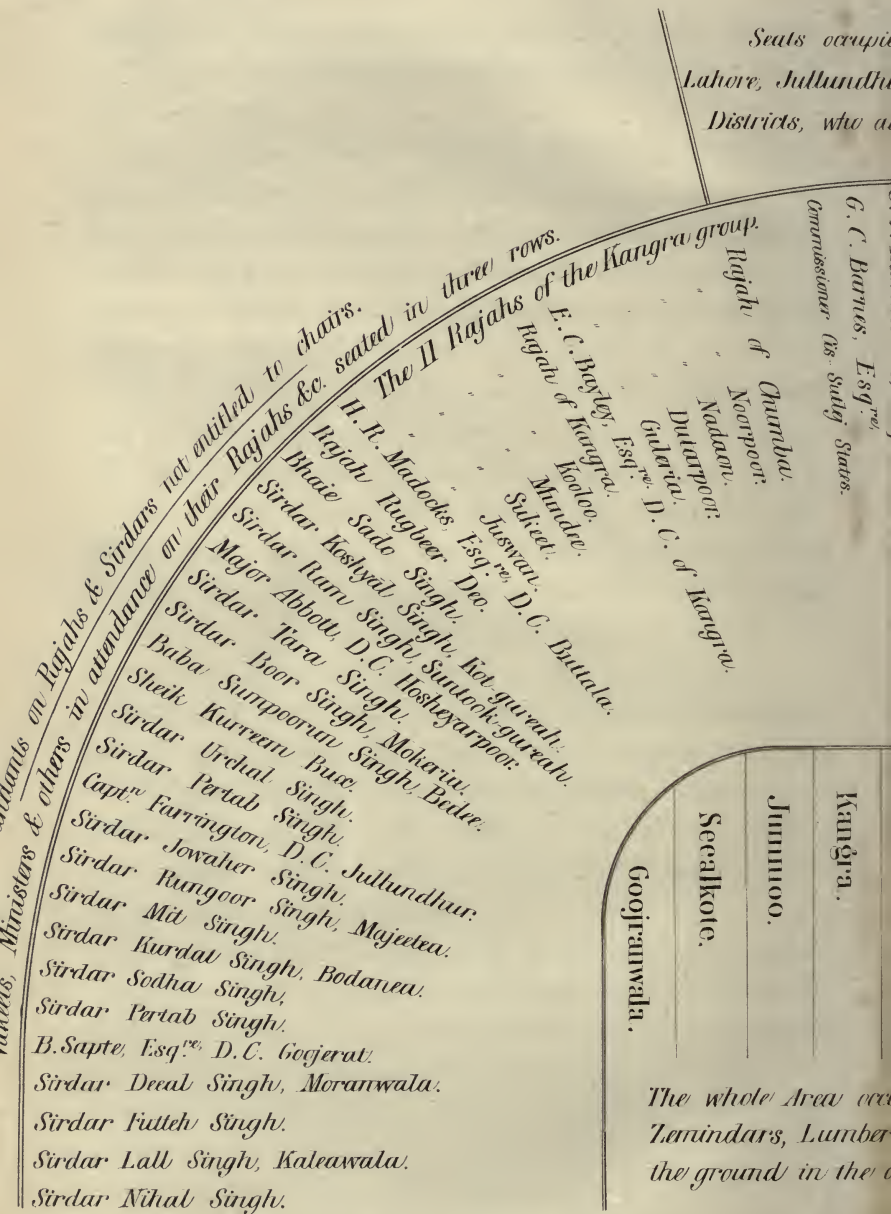 Seats
Lahore,
Districts, who
on Rajahs & Sirdars not entitled to chairs.
Ministers & others in attendance on their Rajahs &c. seated in three rows.
The 11 Rajahs of the Kangra group.
G. C. Barnes, Esqre,
Commissioner Cis-Sutlej States.
Rajah of Chumba.
" " Noorpoor.
" " Nadaon.
" " Dutarpoor.
" " Guleria.
E. C. Bayley, Esqre. D. C. of Kangra.
Rajah of Kangra.
" " Kooloo.
" " Mundee.
" " Sukeet.
" " Juswan.
H. R. Madocks, Esqre, D. C. Buttala.
Rajah Rugbeer Deo.
Bhaie Sado Singh.
Sirdar Koshyal Singh, Kot gureah.
Sirdar Ram Singh, Suntook-gureah.
Major Abbott, D.C. Hosheyarpoor.
Sirdar Tara Singh.
Sirdar Boor Singh, Mokeria.
Baba Sumpoorun Singh, Bedee.
Sheik Kurreem Bux.
Sirdar Urchal Singh.
Sirdar Pertab Singh.
Captn. Farrington, D. C. Jullundhur.
Sirdar Jowaher Singh.
Sirdar Rungoor Singh, Majeetea.
Sirdar Mit Singh.
Sirdar Kurdat Singh, Bodanea.
Sirdar Sodha Singh,
Sirdar Pertab Singh.
B. Sapte, Esqre, D. C. Goojerat.
Sirdar Deeal Singh, Moranwala.
Sirdar Futteh Singh.
Sirdar Lall Singh, Kaleawala.
Sirdar Nihal Singh.
Goojranwala.
Seealkote.
Jummoo.
Kangra.
The whole Area
Zemindars,
the ground in the